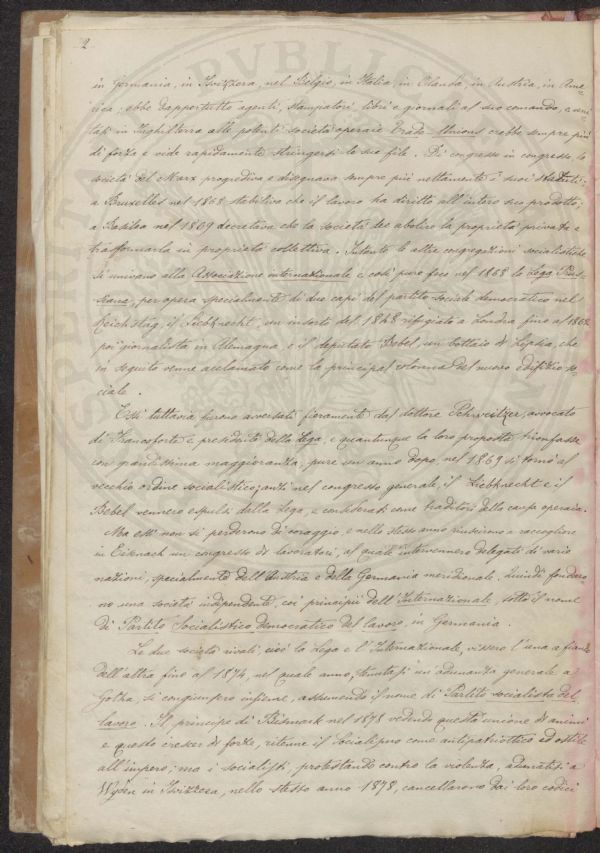 2
in Germania, in Isvizzera, nel Belgio, in Italia, in Olanda, in Austria, in Ame-
rica; ebbe dappertutto agenti, stampatori, libri e giornali al suo comando, e uni-
tasi in Inghilterra alle potenti società operaie Trade-Unions crebbe sempre più
di forza e vide rapidamente stringersi le sue file. Di congresso in congresso la
società del Marx progrediva e disegnava sempre più nettamente i suoi statuti;
a Bruxelles nel 1868 stabiliva che il lavoro ha diritto all'intero suo prodotto;
a Basilea nel 1869 decretava che la società dee abolire la proprietà privata e
trasformarla in proprietà collettiva. Intanto le altre congregazioni socialistiche
si univano alla Associazione internazionale e così pure fece nel 1868 la Lega
per opera specialmente di due capi del partito sociale democratico nel
Reichstag, il Liebknecht, un insorto del 1848 rifugiato a Londra fino al
poi giornalista in Alemagna, e il deputato Bebel, un bottaio di Lipsia, che
in seguito venne acclamato come la principal colonna del nuovo edifizio so-
ciale.
Essi tuttavia furono avversati fieramente dal dottore Schweitzer, avvocato
di Francoforte e presidente della Lega, e quantunque la loro proposta trionfasse
con grandissima maggioranza, pure un anno dopo, nel 1869 si tornò al
vecchio ordine socialistico; anzi nel congresso generale, il Liebknecht e il
Bebel vennero espulsi dalla Lega, e considerati come traditori della causa operaia.
Ma essi non si perderono di coraggio e nello stesso anno riuscirono a raccogliere
in Eisenach un congresso di lavoratori, al quale intervennero delegati di varie
nazioni, specialmente dell'Austria e della Germania meridionale. Quindi fondaro-
no una società indipendente, coi principii dell'Internazionale, sotto il nome
di Partito Socialistico Democratico del lavoro, in Germania.
Le due società rivali, cioè la Lega e l'Internazionale, vissero l'una a fianco
dell'altra fino al 1874, nel quale anno, tenutasi un'adunanza generale a
Gotha, si congiunsero insieme, assumendo il nome di Partito socialista del
lavoro. Il principe di Bismark nel 1878 vedendo questa unione di animi
e questo crescer di forze, ritenne il Socialismo come antipatriottico ed ostile
all'impero; ma i socialisti, protestando contro la violenza, adunatisi a
Wyden in Isvizzera, nello stesso anno 1878, cancellarono dai loro codici